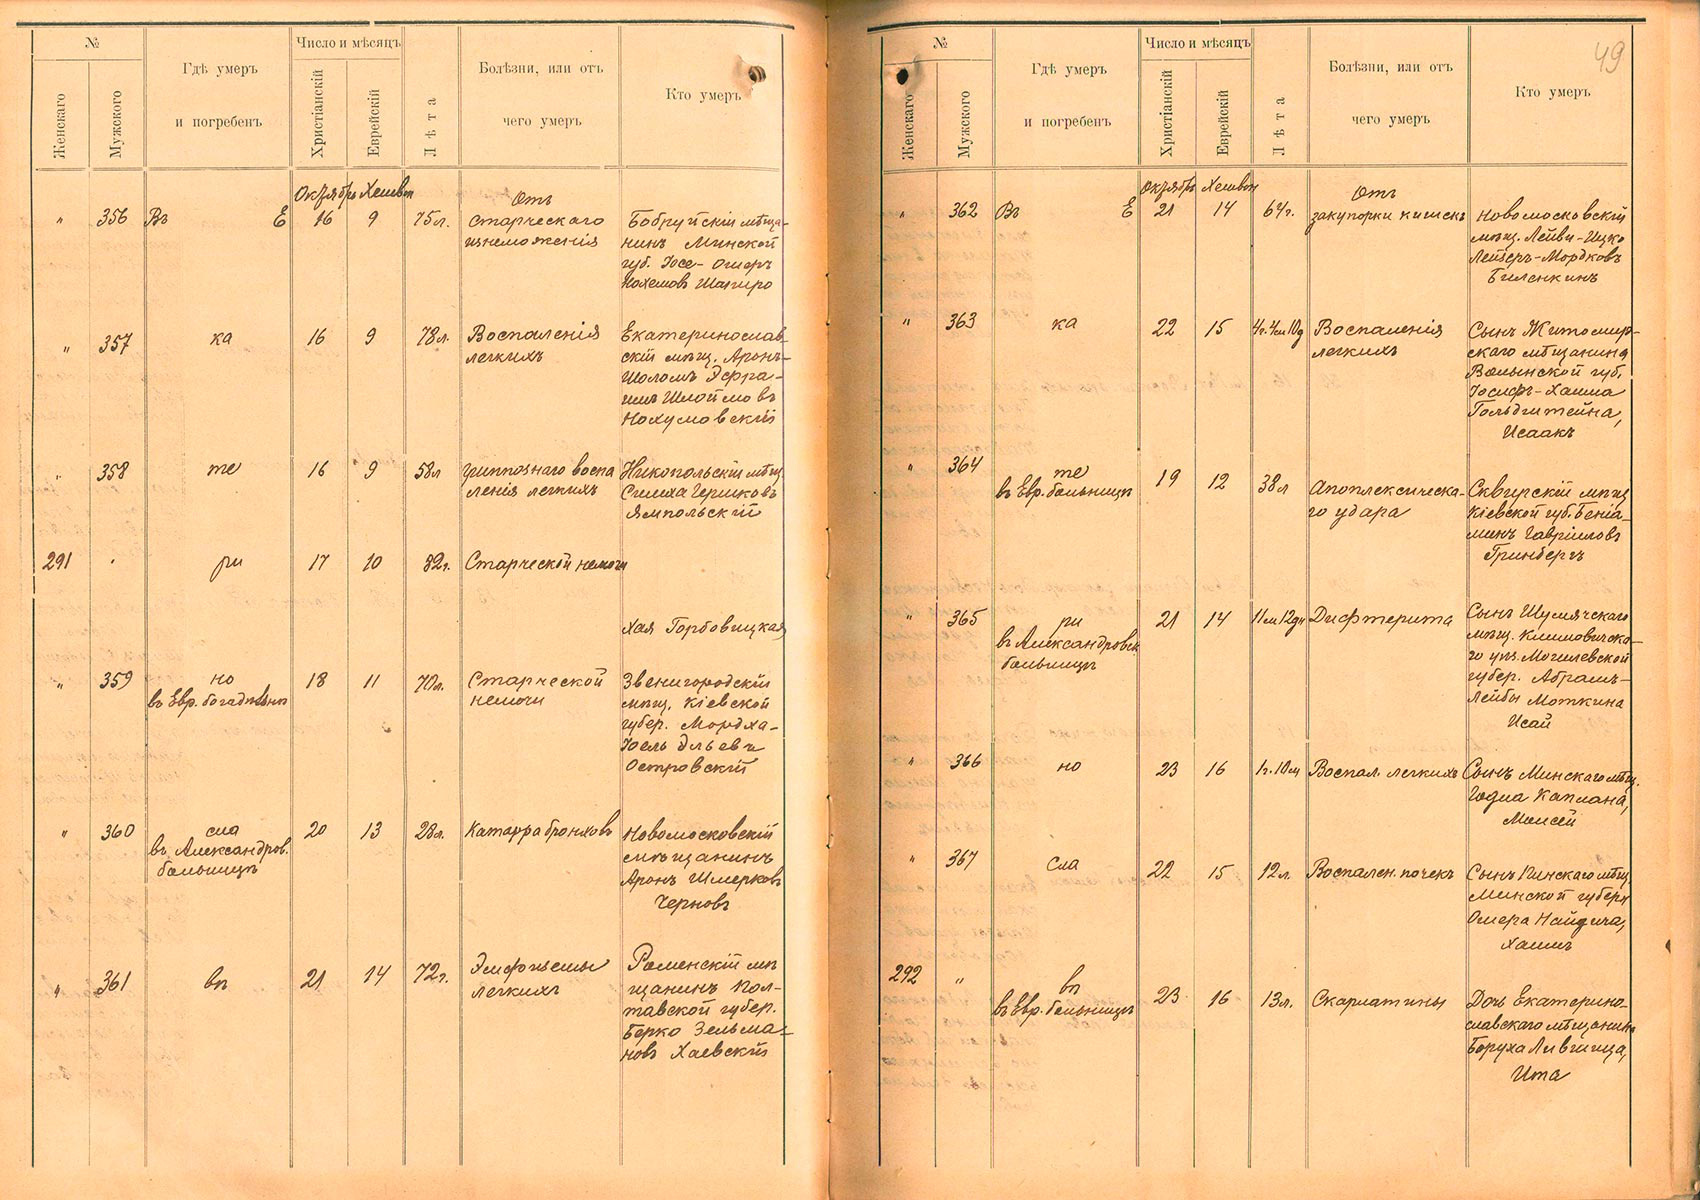 №
Женскаго
Мужского
Гдѣ умеръ
и погребенъ
Число и мѣсяцъ
Христіанскій
Еврейскій
Лѣта
Болѣзни, или отъ
чего умеръ
Кто умеръ
Октябрь Хешвон
Отъ
" 356 Въ Е 16 9 75л. старческаго
изнеможенія
Бобруйскій мѣща-
нинъ Минской
губ. Іосе-Ошеръ
Нохемовъ Шапиро
" 357 ка 16 9 78л. Воспаленія
легкихъ
Екатеринослав-
скій мѣщ. Аронъ-
Шоломъ Эфра-
имъ Шлоймовъ
Нохумовскій
" 358 те 16 9 58л гриппознаго воспа
ленія легкихъ
Никопольскій мѣщ
Симха Гершковъ
Ямпольскій
291 . ри 17 10 82г. Старческой немочи
Хая Горбовицкая
" 359 но
въ Евр. богадѣльнѣ
18 11 70л. Старческой
немочи
Звенигородскій
мѣщ. Кіевской
губер. Мордха-
Іосль Эльевъ
Островскій
" 360 сла
въ Александров.
больницѣ
20 13 28л. Катарра бронховъ
Новомосковскій
мѣщанинъ
Аронъ Шмерковъ
Черновъ
" 361 въ 21 14 72г. Эмфиземы
легкихъ
Роменскій мѣ
щанинъ Пол-
тавской губер.
Берко Зельма-
новъ Хаевскій
49
№
Женскаго
Мужского
Гдѣ умеръ
и погребенъ
Число и мѣсяцъ
Христіанскій
Еврейскій
Лѣта
Болѣзни, или отъ
чего умеръ
Кто умеръ
Октябрь Хешвон
Отъ
" 362 Въ Е 21 14 64г. закупорки кишекъ
Новомосковскій
мѣщ. Лейви-Ицко
Лейзеръ-Мордковъ
Биленкинъ
" 363 ка 22 15 4г.4м10д Воспаленія
легкихъ
Сынъ Житомир-
скаго мѣщанина
Волынской губ.
Іосифъ-Хаима
Гольдштейна,
Исаакъ
" 364 те
въ Евр. больницѣ
19 12 38л Апоплексическа-
го удара
Сквирскій мѣщ
Кіевской губ. Беніа-
минъ Гавріиловъ
Гринбергъ
" 365 ри
въ Александровск.
больницѣ
21 14 11м12дн Дифтерита
Сынъ Шумячскаго
мѣщ. Климовичска-
го уѣз. Могилевской
губер. Абрамъ-
Лейбы Моткина
Исай
" 366 но 23 16 1г.10м Воспал. легкихъ
Сынъ Минскаго мѣщ.
Годиа Каплана,
Моисей
" 367 сла 22 15 12л. Воспален. почекъ
Сынъ Пинскаго мѣщ.
Минской губерн
Ошера Найдича,
Хаимъ
292 " въ
въ Евр. больницѣ
23 16 13л. Скарлатины
Дочь Екатерино-
славскаго мѣщанина
Боруха Лившица,
Ита